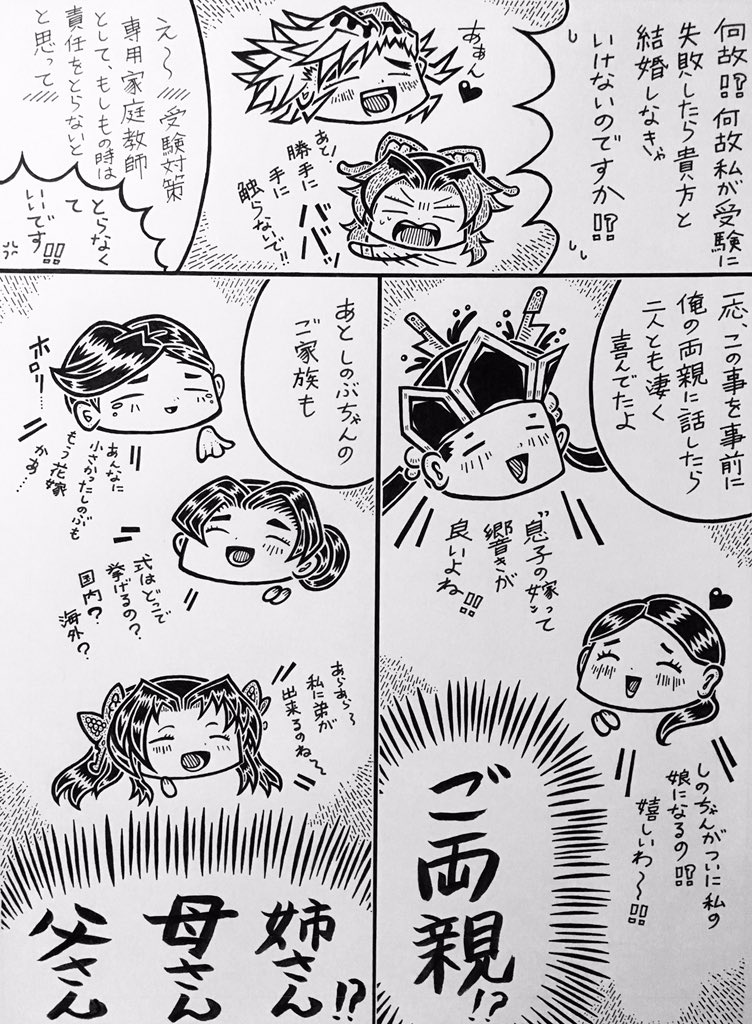 何故!!?何故私が受験に
失敗したら貴方と
結婚しなきゃ
いけないのですか!!?
あぁん
あと!
勝手に
手に
触らないで!!
バババッ
え～受験対策
専用家庭教師
として、もしもの時は
責任をとらないと
と思って
とらなく
て
いいです!!
一応、この事を事前に
俺の両親に話したら
二人とも凄く
喜んでたよ
"息子の嫁"って
響きが
良いよね!!
しのぶちゃんがついに私の
娘になるの!!?
嬉しいわ～!!
ご両親!?
あとしのぶちゃんの
ご家族も
ホロリ…
あんなに
小さかったしのぶも
もう花嫁
かぁ…
式はどこで
挙げるの?
国内?
海外?
あらあら～
私に弟が
出来るのね～
姉さん
母さん
父さん!?